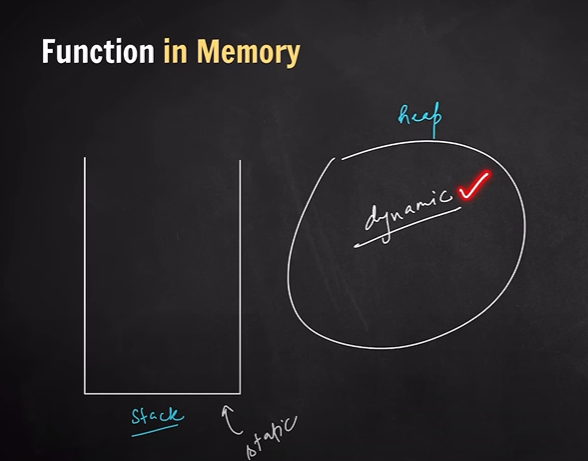 Function in Memory
heap
dynamic
Stack
static